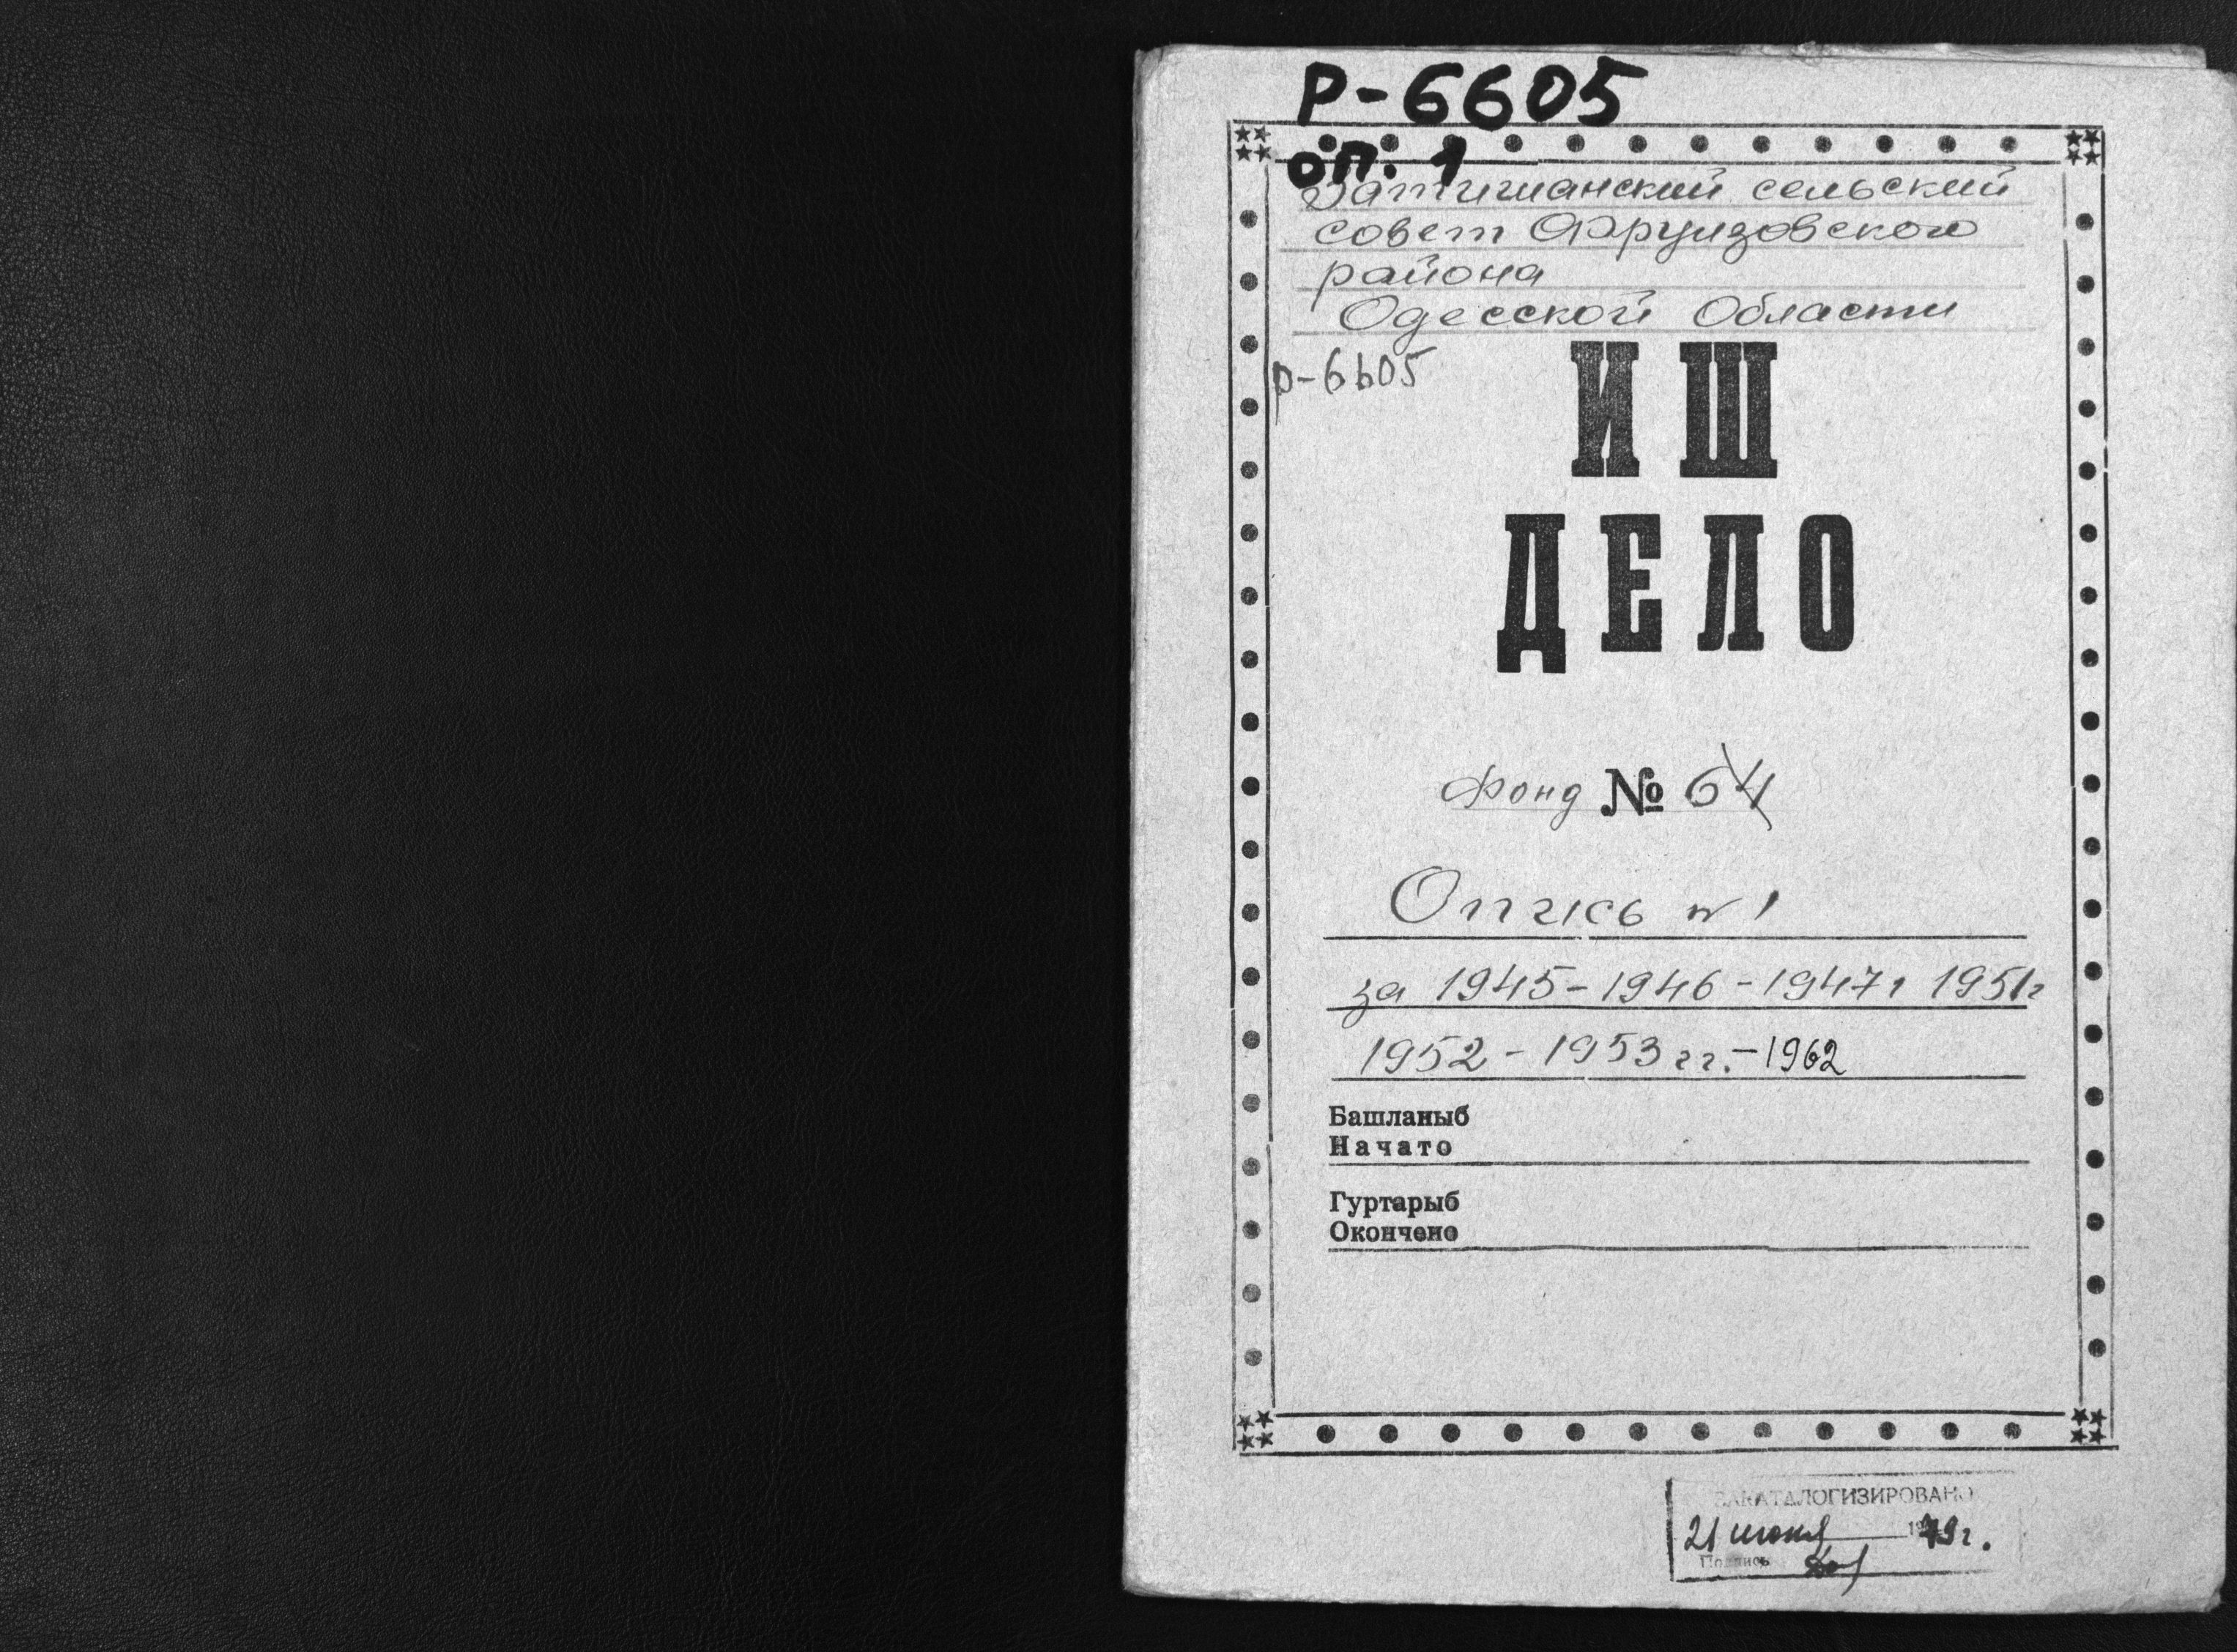 Р-6605
оп. 1
Затишанский сельский
совет Фрунзовского
района
Одесской Области
р-6605
ИШ
ДЕЛО
Фонд № 64
Опись № 1
за 1945-1946-1947г 1951г
1952-1953гг.-1962
Башланыб
Начато
Гуртарыб
Окончено
ЗАКАТАЛОГИЗИРОВАНО
21 июня 1979г.
Подпись